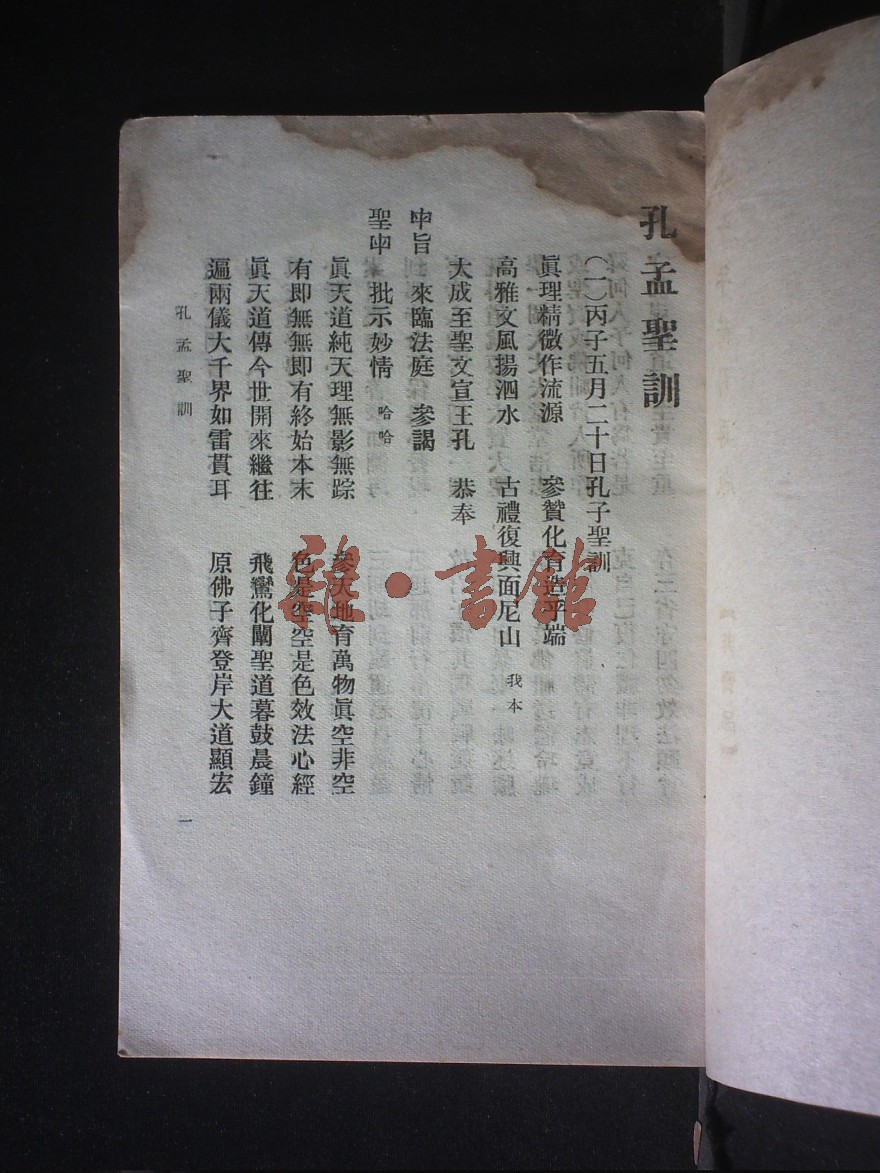 孔孟聖訓
(一)丙子五月二十日孔子聖訓
眞理精微作流源 參贊化育造乎端
高雅文風揚泗水 古禮復興面尼山 我本
大成至聖文宣王孔 恭奉
𢆍旨 來臨法庭 參謁
聖𢆍 批示妙情 哈哈
眞天道純天理無影無踪 參天地育萬物眞空非空
有即無無即有終始本末 色是空空是色效法心經
眞天道傳今世開來繼往 飛鸞化闡聖道暮鼓晨鐘
遍兩儀大千界如雷貫耳 原佛子齊登岸大道顯宏
孔孟聖訓
一
雅·書館